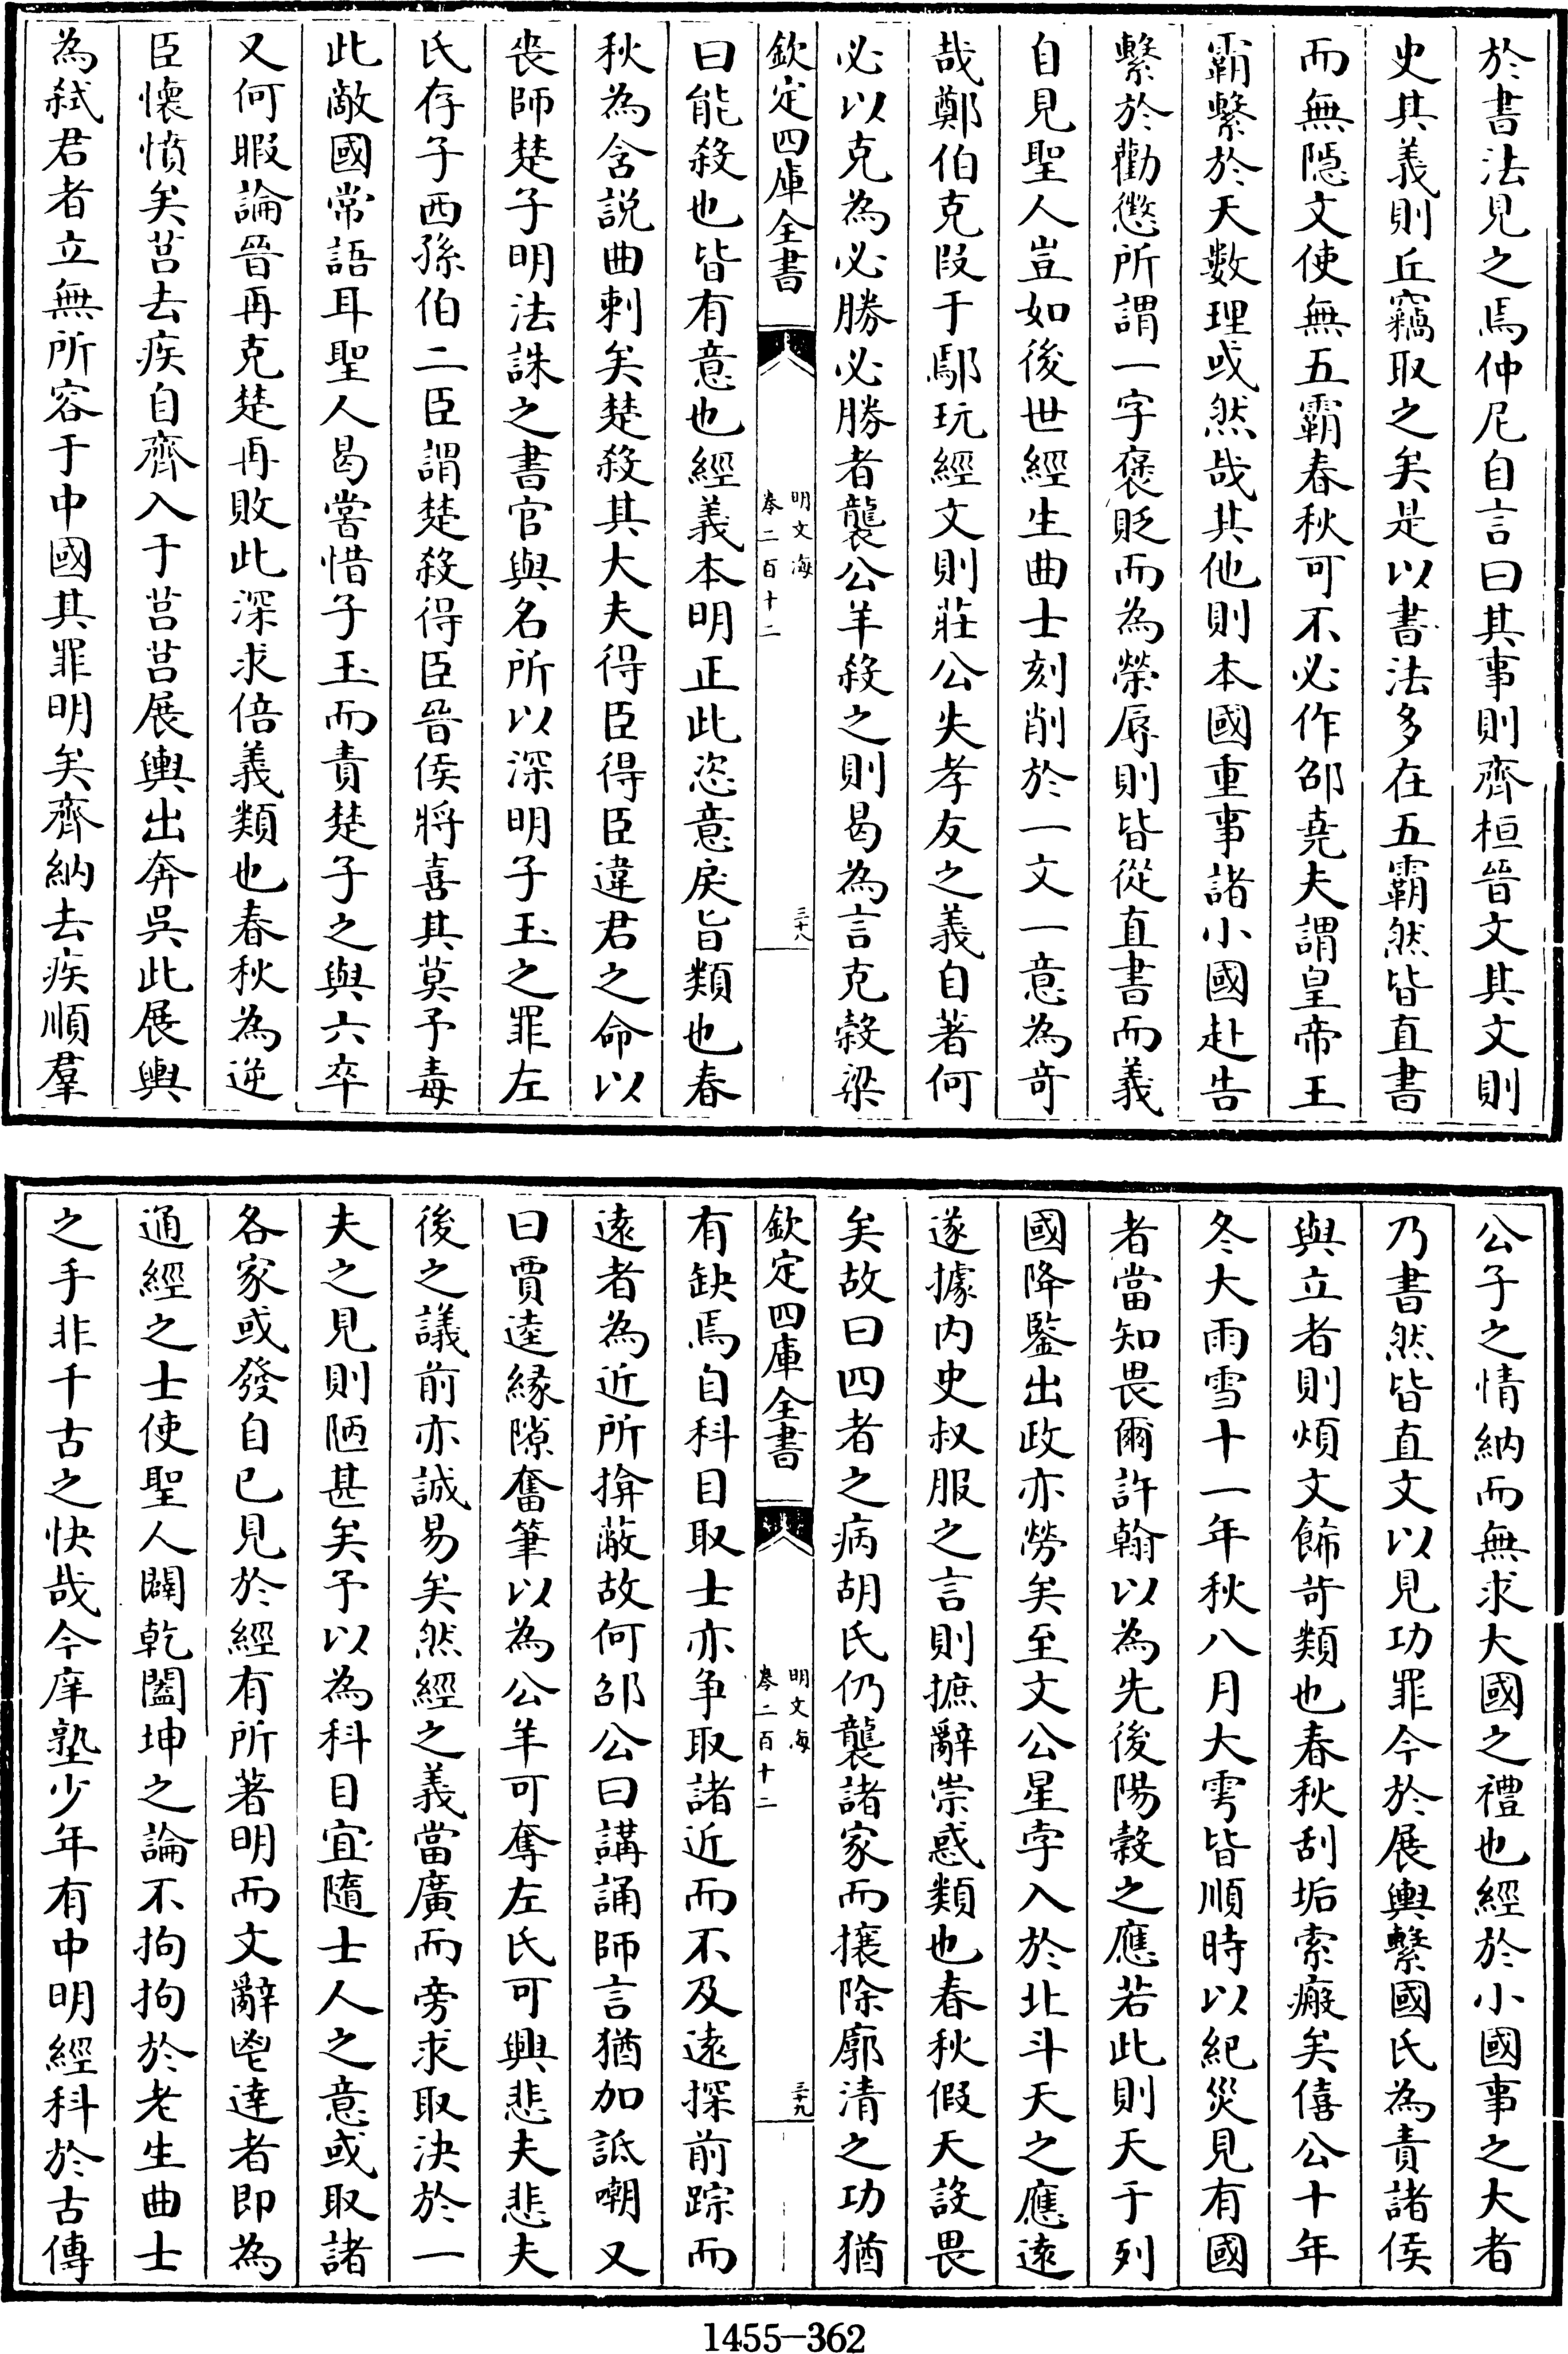 於書法見之焉仲尼自言曰其事則齊桓晉文其文則
史其義則丘竊取之矣是以書法多在五霸然皆直書
而無隱文使無五霸春秋可不必作邵堯夫謂皇帝王
霸繫於天數理或然哉其他則本國重事諸小國赴告
繫於勸懲所謂一字褒貶而為榮辱則皆從直書而義
自見聖人豈如後世經生曲士刻削於一文一意為竒
哉鄭伯克段于鄢玩經文則莊公失孝友之義自著何
必以克為必勝必勝者襲公羊殺之則曷為言克榖梁
欽定四庫全書
明文海
卷二百十二
三十八
曰能殺也皆有意也經義本明正此恣意戾旨類也春
秋為含説曲刺矣楚殺其大夫得臣得臣違君之命以
喪師楚子明法誅之書官與名所以深明子玉之罪左
氏存子西孫伯二臣謂楚殺得臣晉侯將喜其莫予毒
此敵國常語耳聖人曷嘗惜子玉而責楚子之與六卒
又何暇論晉再克楚再敗此深求倍義類也春秋為逆
臣懷憤矣莒去疾自齊入于莒莒展輿出奔吳此展輿
為弑君者立無所容于中國其罪明矣齊納去疾順羣
公子之情納而無求大國之禮也經於小國事之大者
乃書然皆直文以見功罪今於展輿繫國氏為責諸侯
與立者則煩文飾苛類也春秋刮垢索癜矣僖公十年
冬大雨雪十一年秋八月大雩皆順時以紀災見有國
者當知畏爾許翰以為先後陽榖之應若此則天于列
國降鑒出政亦勞矣至文公星孛入於北斗天之應遠
遂據内史叔服之言則摭辭崇惑類也春秋假天設畏
矣故曰四者之病胡氏仍襲諸家而攘除廓清之功猶
欽定四庫全書
明文海
卷二百十二
三十九
有缺焉自科目取士亦争取諸近而不及遠探前踪而
遠者為近所揜蔽故何邵公曰講誦師言猶加詆嘲又
曰賈逵緣隙奮筆以為公羊可奪左氏可興悲夫悲夫
後之議前亦誠易矣然經之義當廣而旁求取決於一
夫之見則陋甚矣予以為科目宜隨士人之意或取諸
各家或發自已見於經有所著明而文辭鬯達者即為
通經之士使聖人闢乾闔坤之論不拘拘於老生曲士
之手非千古之快哉今庠塾少年有中明經科於古傳
1455—362